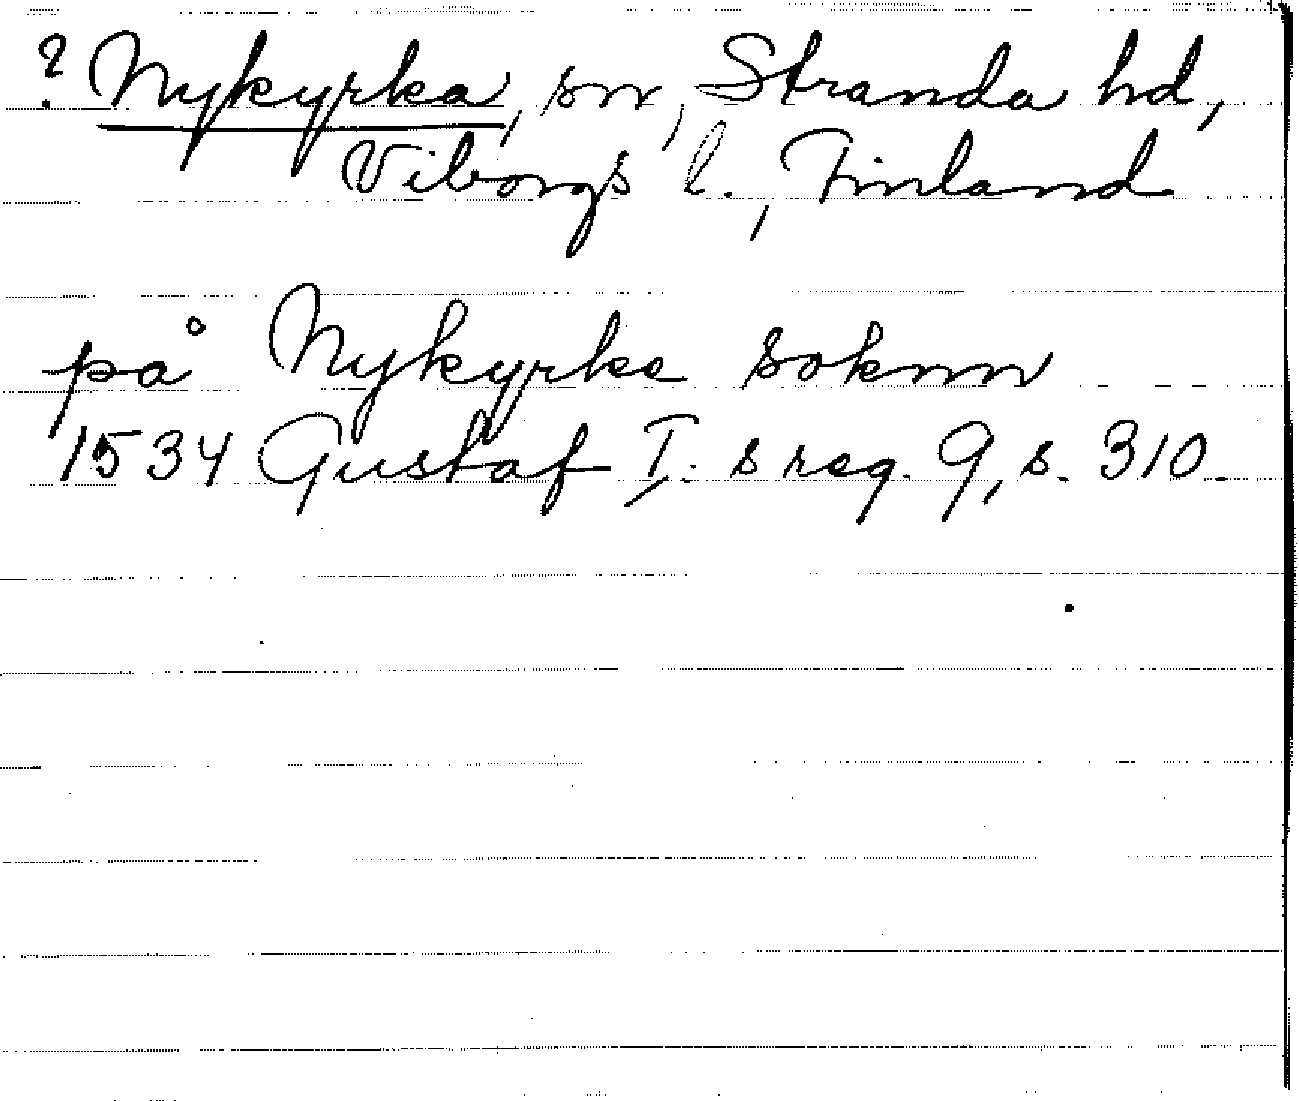 ? Nykyrka, sn, Stranda hd,
Viborgs l., Finland
på Nykyrke soknn
1534 Gustaf I. s reg. 9, s. 310.